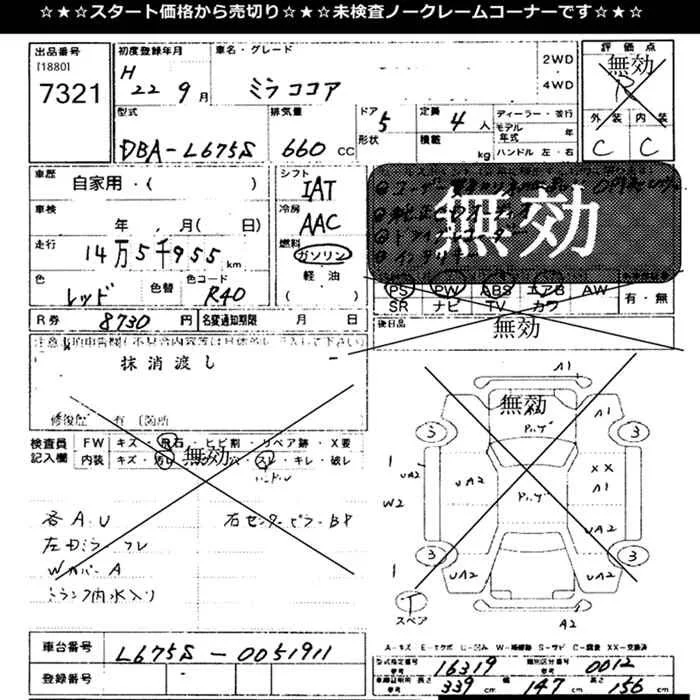 ☆★☆スタート価格から売切り☆★☆未検査ノークレームコーナーです☆★☆
出品番号
[1880]
7321
初度登録年月
H 22 9月
車名・グレード
ミラ ココア
2WD
・
4WD
評価点
無効
R
型式
DBA-L675S
排気量
660 cc
ドア 5
形状
定員 4 人
積載 kg
ディーラー・並行
モデル年式 年
ハンドル 左・右
外装 内装
C C
車歴
自家用・( )
車検
年 月( 日)
走行
14万5千955 km
色
レッド
色替
色コード
R40
シフト
IAT
冷房
AAC
燃料
ガソリン
軽油
( )
無効
PS PW ABS エアB AW
SR ナビ TV カワ
有・無
R券 8730 円
名変通知期限 月 日
後日品
無効
抹消渡し
修復歴 有 [箇所
検査員
記入欄
FW キズ・飛石・ヒビ割・リペア跡・X要
内装 キズ・汚レ・穴・スレ・キレ・破レ
無効
ハンドル
各A.U
右センターピラーBP
WカバーA
トランク内水入り
無効
A1
A1
3
3
1
UA2
W2
UA2
XX
A1
UA2
3
3
1
UA2
UA2
スペア
A2
車台番号
L675S-0051911
登録番号
A-キズ E-エクボ U-凹み W-補修跡 S-サビ C-腐食 XX-交換済
型式指定番号
参考
16319
類別区分番号
参考
0012
長さ
339 cm
幅
147 cm
高さ
156 cm